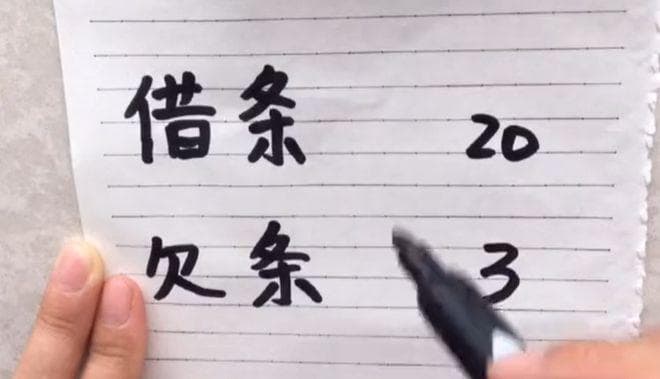 借条 20
欠条 3